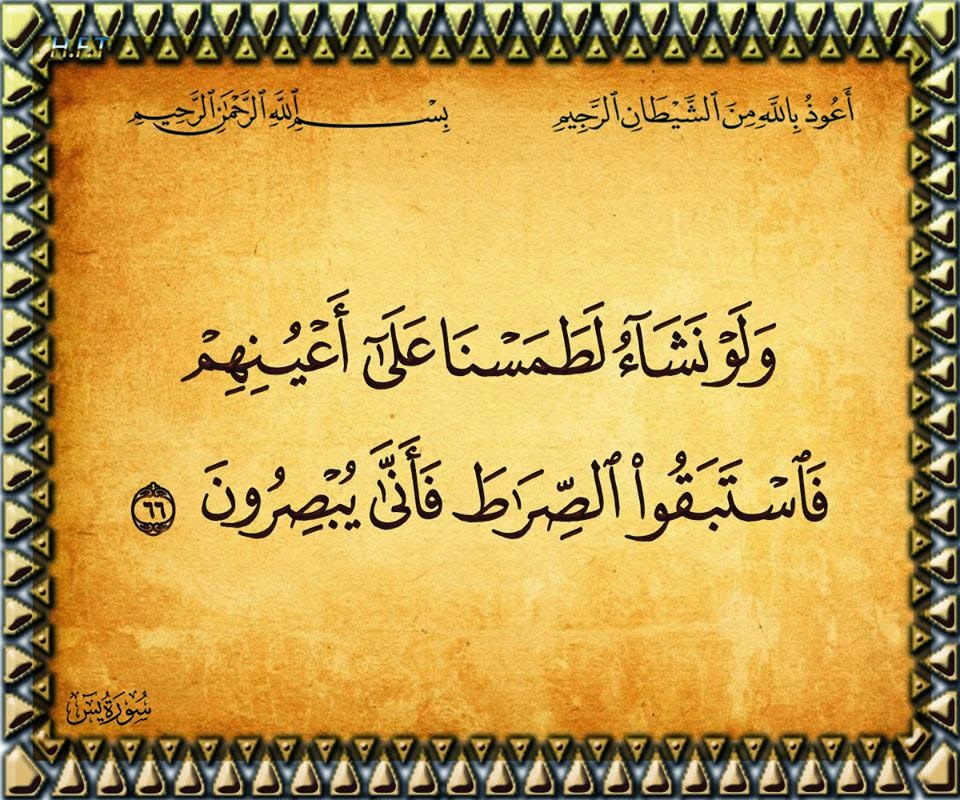 H.F.T
أَعُوذُ بِاللَّهِ مِنَ ٱلشَّيْطَانِ ٱلرَّجِيمِ
بِسْمِ ٱللَّهِ ٱلرَّحْمَٰنِ ٱلرَّحِيمِ
وَلَوْ نَشَآءُ لَطَمَسْنَا عَلَىٰٓ أَعْيُنِهِمْ
فَٱسْتَبَقُوا۟ ٱلصِّرَٰطَ فَأَنَّىٰ يُبْصِرُونَ ٦٦
سُورَةُ يسٓ